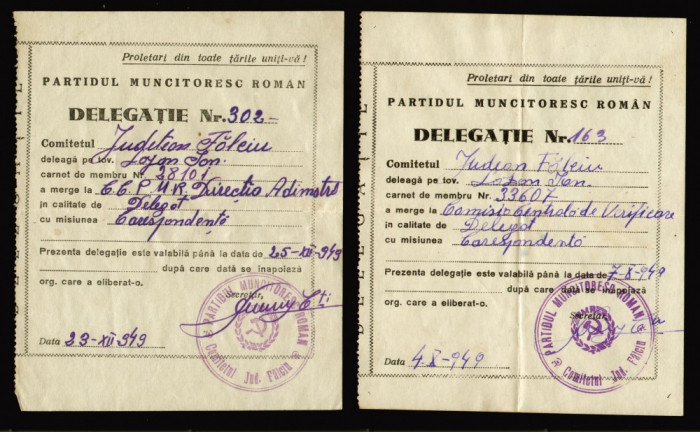 Proletari din toate țările uniți-vă!
PARTIDUL MUNCITORESC ROMÂN
DELEGAȚIE Nr. 302
Comitetul Județean Fălciu
deleagă pe tov. Lozon Ion.
carnet de membru Nr. 28101
a merge la C.C.P.M.R. Direcția Adimstrd
în calitate de Delegat
cu misiunea Carespondentă
Prezenta delegație este valabilă până la data de 25-XII-949
după care dată se inapoiază
org. care a eliberat-o.
Secretar,
PARTIDUL MUNCITORESC ROMÂN
Comitetul Jud. Fălciu
Data 23-XII-949
Proletari din toate țările uniți-vă!
PARTIDUL MUNCITORESC ROMÂN
DELEGAȚIE Nr. 163
Comitetul Judean Fălciu
deleagă pe tov. Lozon Ion.
carnet de membru Nr. 33607
a merge la Comisia Centrala de Verificare
în calitate de Delegat
cu misiunea Carespondentă
Prezenta delegație este valabilă până la data de 7-X-949
după care dată se inapoiază
org. care a eliberat-o.
Secretar
PARTIDUL MUNCITORESC ROMÂN
Comitetul Jud. Fălciu
Data 4-X-949